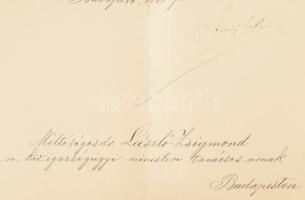 Budapest, 
darabanth
Méltóságos dr. László Zsigmond
m. kir. igazságügyi ministeri tanácsos urnak
Budapesten